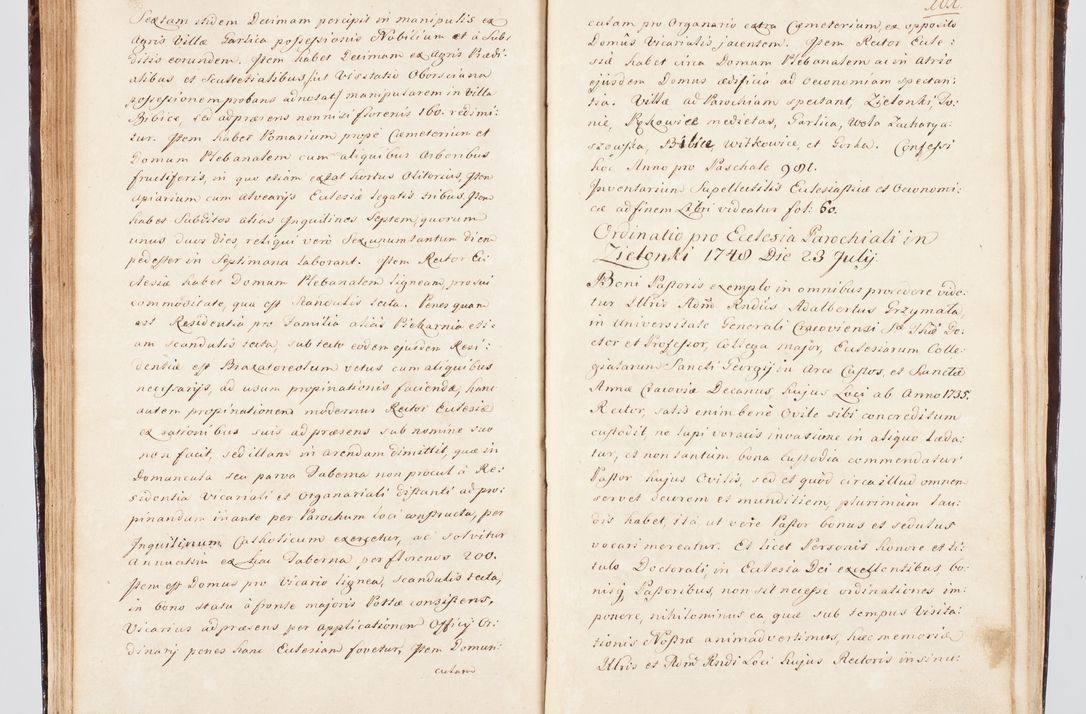 Sextam itidem Decimam percipit in manipulis ex
Agris Villæ Garlica possessionis Nobilium et à Sub:
ditis eorundem. Item habet Decimam ex Agris Prædi:
alibus et Scultetialibus /: ut Visitatio Oborsciana
possessionem probans adnotat :/ manipularem in Villa
Bibice, sed ad præsens nonnisi florenis 160. redimi:
tur. Item habet Pomarium propè Cæmeterium et
Domum Plebanalem cum aliquibus Arboribus
fructiferis, in quo etiam extat hortus Olitorius, Item
Apiarium cum Alvearijs Ecclesiæ legatis tribus, Item
habet Subditos aliàs Inquilinos Septem, quorum
unus duos dies, reliqui verò Sex unum tantum diem
pedester in Septimana laborant. Item Rector Ec:
clesiæ habet Domum Plebanalem ligneam, pro sui
commoditate, quæ est Scandulis tecta. Penes quam
est Residentia pro Familia aliàs Piekarnia eti:
am scandulis tecta, sub tecto eodem ejusdem Resi:
dentiæ est Braxatorestum vetus cum aliquibus
necessarijs, ad usum propinationis faciendæ, hanc
autem propinationem modernus Rector Ecclesiæ
ex rationibus suis ad præsens sub nomine suo
non facit, sed illam in arendam dimittit, quæ in
Domuncula seu parva Taberna non procul à Re:
sidentia Vicariali et Organariali distanti ad pro:
pinandum in ante per Parochum loci constructa, per
Inquilinum Catholicum exercetur, ac solvitur
Annuatim ex hac Taberna per florenos 200.
Item est Domus pro Vicario lignea, scandulis tecta,
in bono statu à fronte majoris Portæ consistens,
Vicarius ad præsens per applicationem Officij Or:
dinarij penes hanc Ecclesiam fovetur, Item Domun:
culam
culam pro Organario extra Cæmeterium, ex opposito
Domûs Vicarialis jacentem. Item Rector Eccle:
siæ habet circa Domum Plebanalem ac in Atrio
ejusdem Domus ædificia ad Oeconomiam spectan:
tia. Villæ ad Parochiam spectant, Zielonki, Do:
nie, Pękowice medietas, Garlica, Wola Zacharya:
szowska, Bibice, Witkowice, et Gorka. Confessi
hoc Anno pro Paschate 981.
Inventarium Supellectilis Ecclesiasticæ et Oeconomi:
cæ ad finem Libri videatur fol: 60.
Ordinatio pro Ecclesia Parochiali in
Zielonki 1748 Die 23 Julij
Boni Pastoris exemplo in omnibus procedere vide:
tur Illris Adm̃ Rndus Adalbertus Grzymala,
in Universitate Generali Cracoviensi S. Thæ Do:
ctor et Professor, Collega major, Ecclesiarum Colle:
giatarum Sancti Georgij in Arce Custos, et Sanctæ
Annæ Cracoviæ Decanus, hujus Loci ab Anno 1735.
Rector, satis enim benè Ovile sibi concreditum
custodit, ne lupi voracis invasione in aliquo læda:
tur, et non tantùm bona custodia commendatur
Pastor hujus Ovilis, sed et quòd circa illud omnem
servet decorem et munditiem, plurimùm lau:
dis habet, ità, ut verè Pastor bonus et sedulus
vocari mereatur. Et licet Personis honore et ti:
tulo Doctorali, in Ecclesia Dei excellentibus, bo:
nisq Pastoribus, non sit necesse ordinationes im:
ponere, nihilominus ea quæ sub tempus Visita:
tionis Nostræ animadvertimus, hæc memoriæ
Illris et Adm̃ Rndi Loci hujus Rectoris insinu: